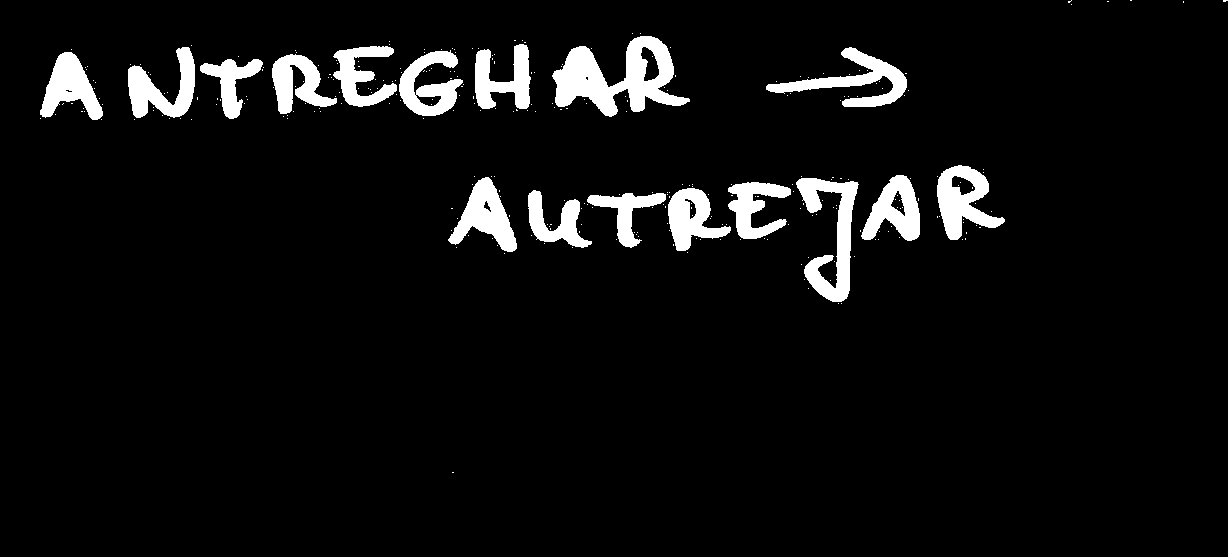 ANTREGHAR →
AUTREJAR